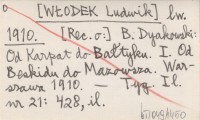 [WŁODEK Ludwik] lw.
1910. [Rec. o:] B. Dyakowski:
Od Karpat do Bałtyku. I. Od
Beskidu do Mazowsza. War-
szawa 1910. — Tyg. Il.
nr 21: 428, il.